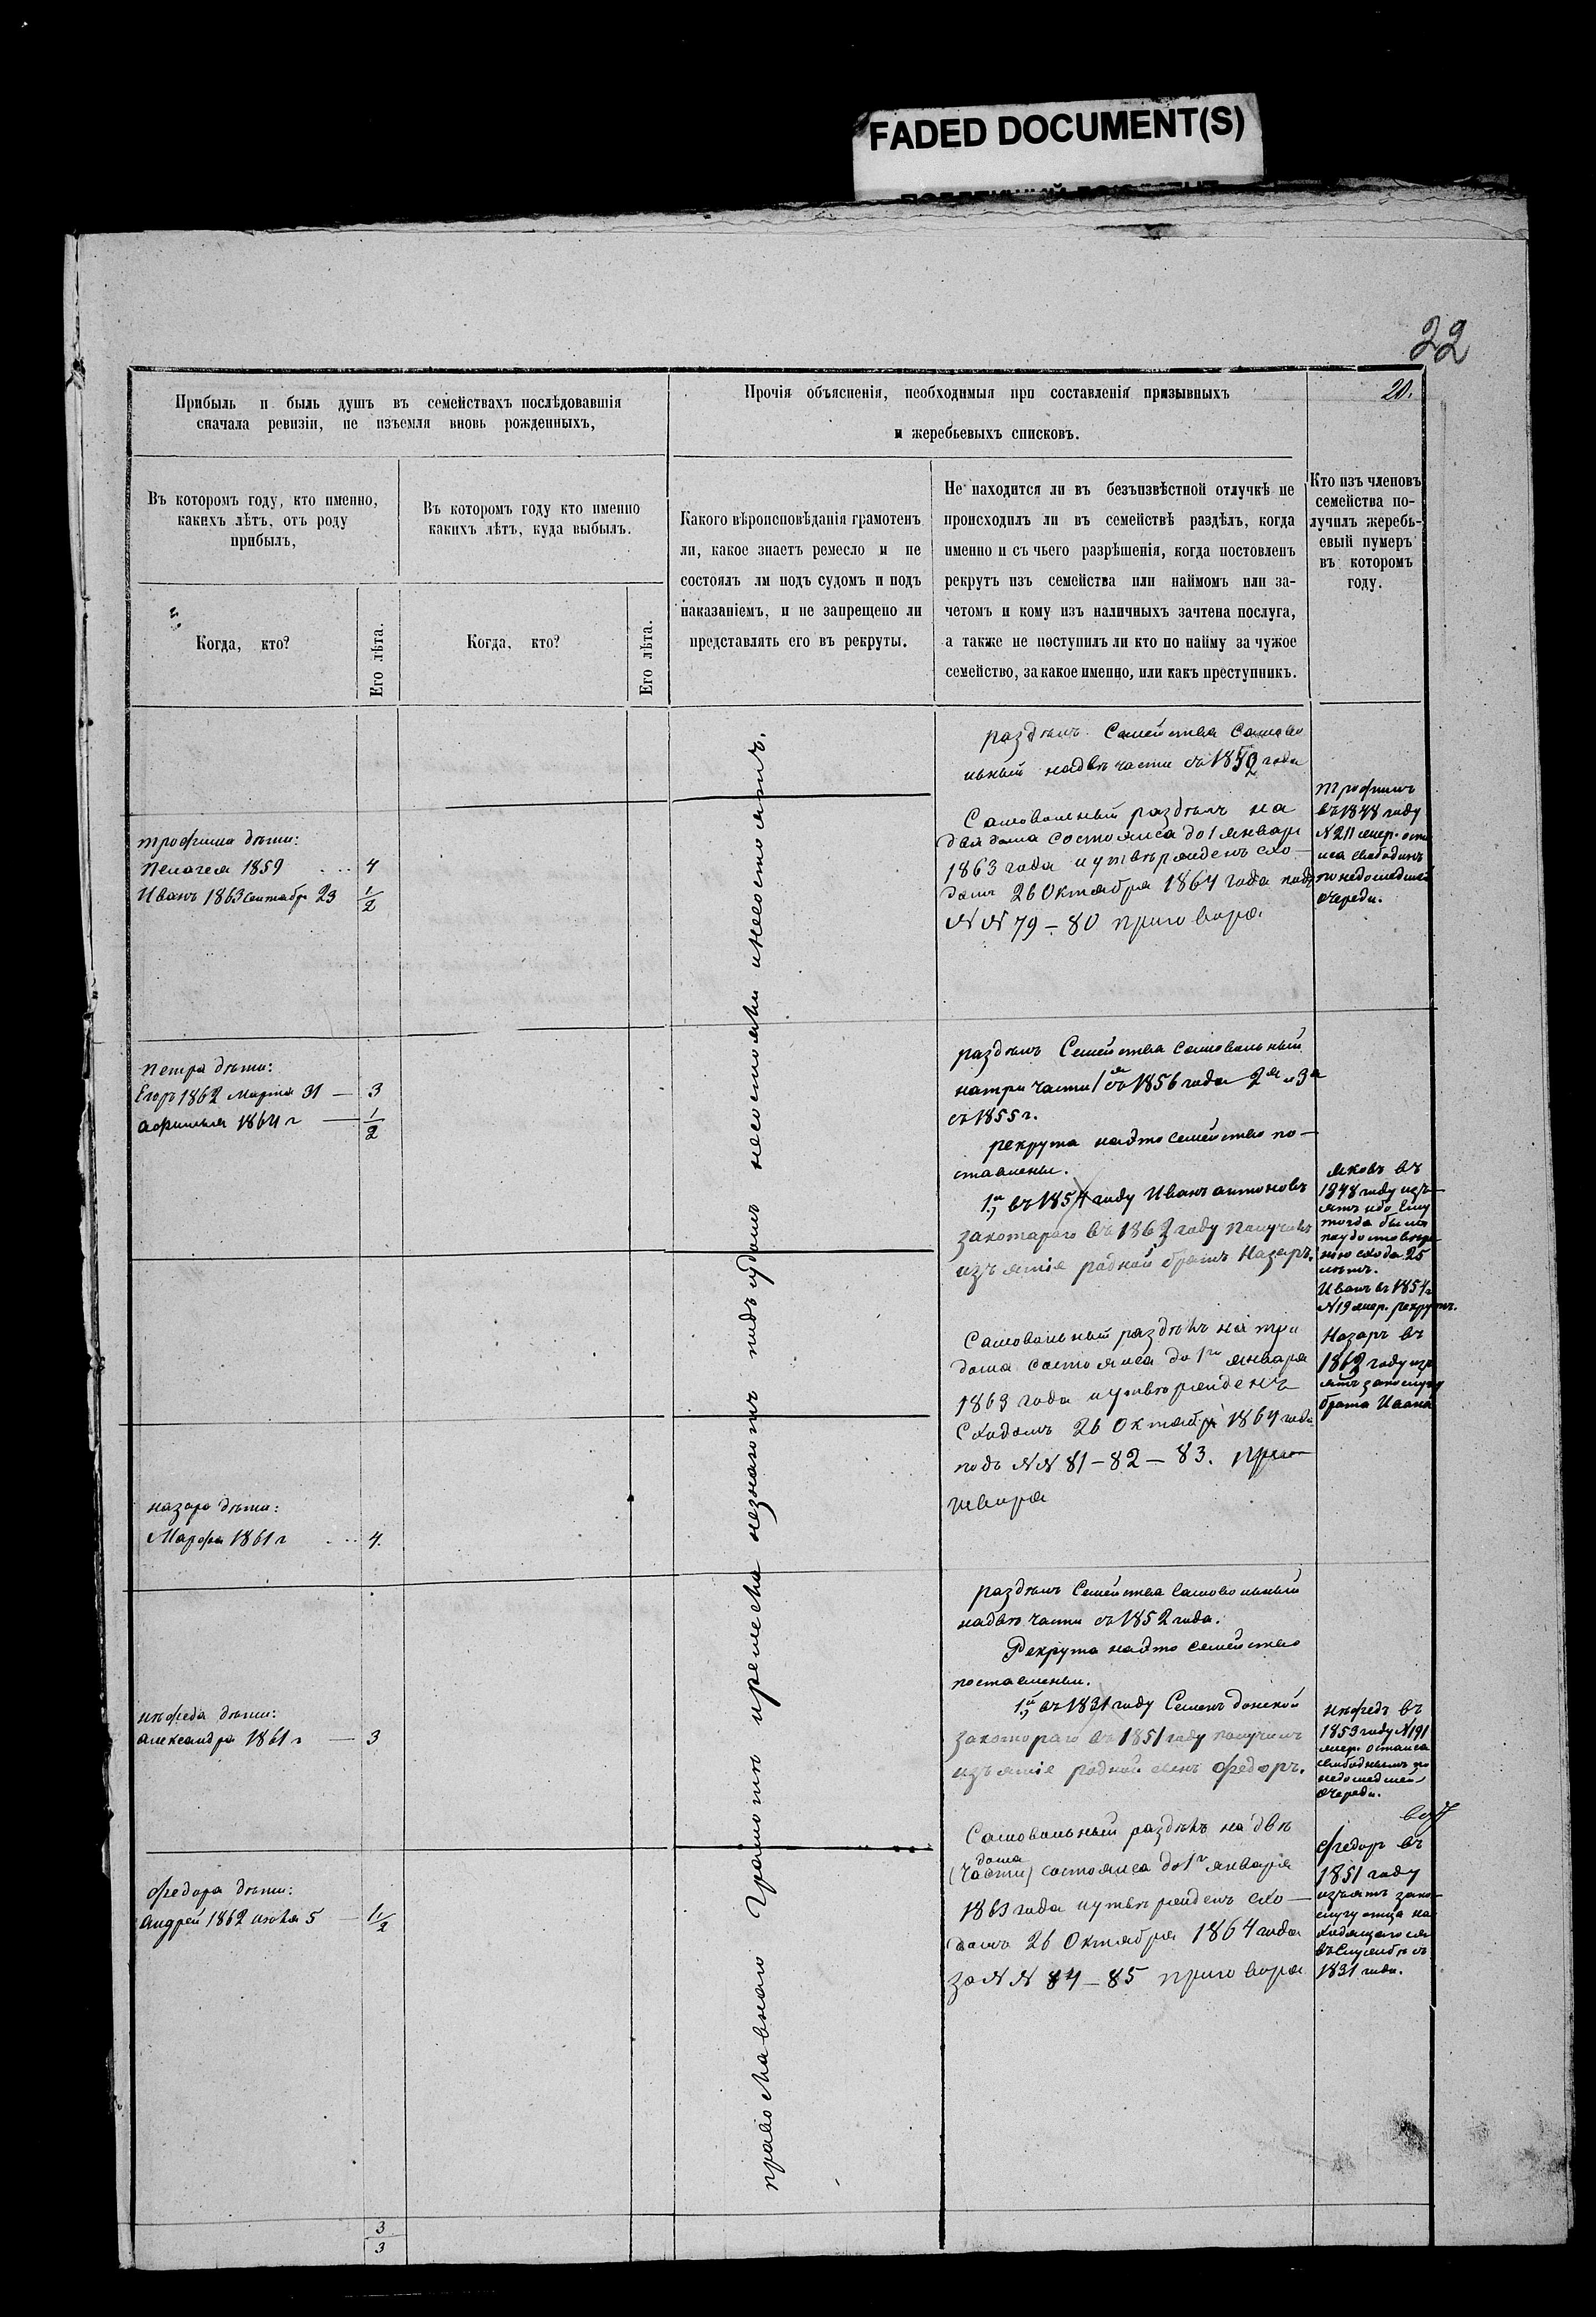 FADED DOCUMENT(S)
22
20.
Прибыль и быль душъ въ семействахъ послѣдовавшія
сначала ревизіи, не изъемля вновь рожденныхъ,
Прочія объясненія, необходимыя при составленія призывныхъ
и жеребьевыхъ списковъ.
Въ которомъ году, кто именно,
какихъ лѣтъ, отъ роду
прибылъ,
Въ которомъ году кто именно
какихъ лѣтъ, куда выбылъ.
Какого вѣроисповѣданія грамотенъ
ли, какое знаетъ ремесло и не
состоялъ лм подъ судомъ и подъ
наказаніемъ, и не запрещено ли
представлять его въ рекруты.
Не находится ли въ безъизвѣстной отлучкѣ не
происходилъ ли въ семействѣ раздѣлъ, когда
именно и съ чьего разрѣшенія, когда постовленъ
рекрутъ изъ семейства или наймомъ или за-
четомъ и кому изъ наличныхъ зачтена послуга,
а также не поступилъ ли кто по найму за чужое
семейство, за какое именно, или какъ преступникъ.
Кто изъ членовъ
семейства по-
лучилъ жеребь-
евый нумеръ
въ которомъ
году.
Когда, кто?
Его лѣта.
Когда, кто?
Его лѣта.
православнаго Грамотѣ иремесла незнаютъ подъ судомъ несостояли инесостоятъ.
раздѣлъ Семейства Самово
льный надвѣ части съ 1852 года
трофима дѣти:
пелагея 1859 ... 4
Иванъ 1863 Сентабр 23 1/2
Самовольный раздѣлъ на
два дома состоялса до 1 январи
1863 года иутвѣржденъ схо-
домъ 26 Октября 1864 года подъ
N N 79 - 80 приговора
трофимъ
въ 1848 году
N 211 жер. оста
лса свободнъ
понедошедшей
очереди.
петра дѣти:
Егоръ 1862 марта 31 — 3
афимья 1864 г — 1/2
раздѣлъ Семейства самовольный
натри части 1я съ 1856 года 2я и 3я
съ 1855 г.
рекрута наэто семейство по-
ставлены.
1.й въ 1854 году Иванъ антоновъ
закотораго въ 1862 году получилъ
изъятія родной братъ Назаръ.
яковъ въ
1848 году изъ-
ятъ ибо ему
тогда было
поудостовѣре
нію схода 25
лѣтъ.
Иванъ въ 1854 г
N 19 жер. рекрутъ.
Самовольный раздѣлъ на три
дома состоялса до 1го января
1863 года иутвѣржденъ
Сходомъ 26 Октабр 1864 года
подъ N N 81 - 82 - 83. при
говора
Назаръ въ
1862 году изъ
ятъ запослугу
брата Ивана
назара дѣти:
Марфа 1861 г ... 4.
раздѣлъ Семейства самовольный
надвѣ части съ 1852 года.
Рекрута наэто семейство
поставлены.
1.й въ 1831 году Семенъ донской
закотораго въ 1851 году получилъ
изъятія родной сынъ Федоръ.
нефеда дѣти:
александра 1861 г — 3
нефедъ въ
1853 году N 191
жер. осталса
свободнымъ за
недошедшей
очереди.
Самовольный раздѣлъ на двѣ
дома
(части) состоялса до 1го января
1863 года иутвѣржденъ схо-
домъ 26 Октября 1864 года
за N N 84 - 85 приговора
федоръ въ
1851 году
изъятъ запо-
слугу отца на
ходящагося
въ службѣ съ
1831 года.
федора дѣти:
андрей 1862 июля 5 — 1 1/2
3
3